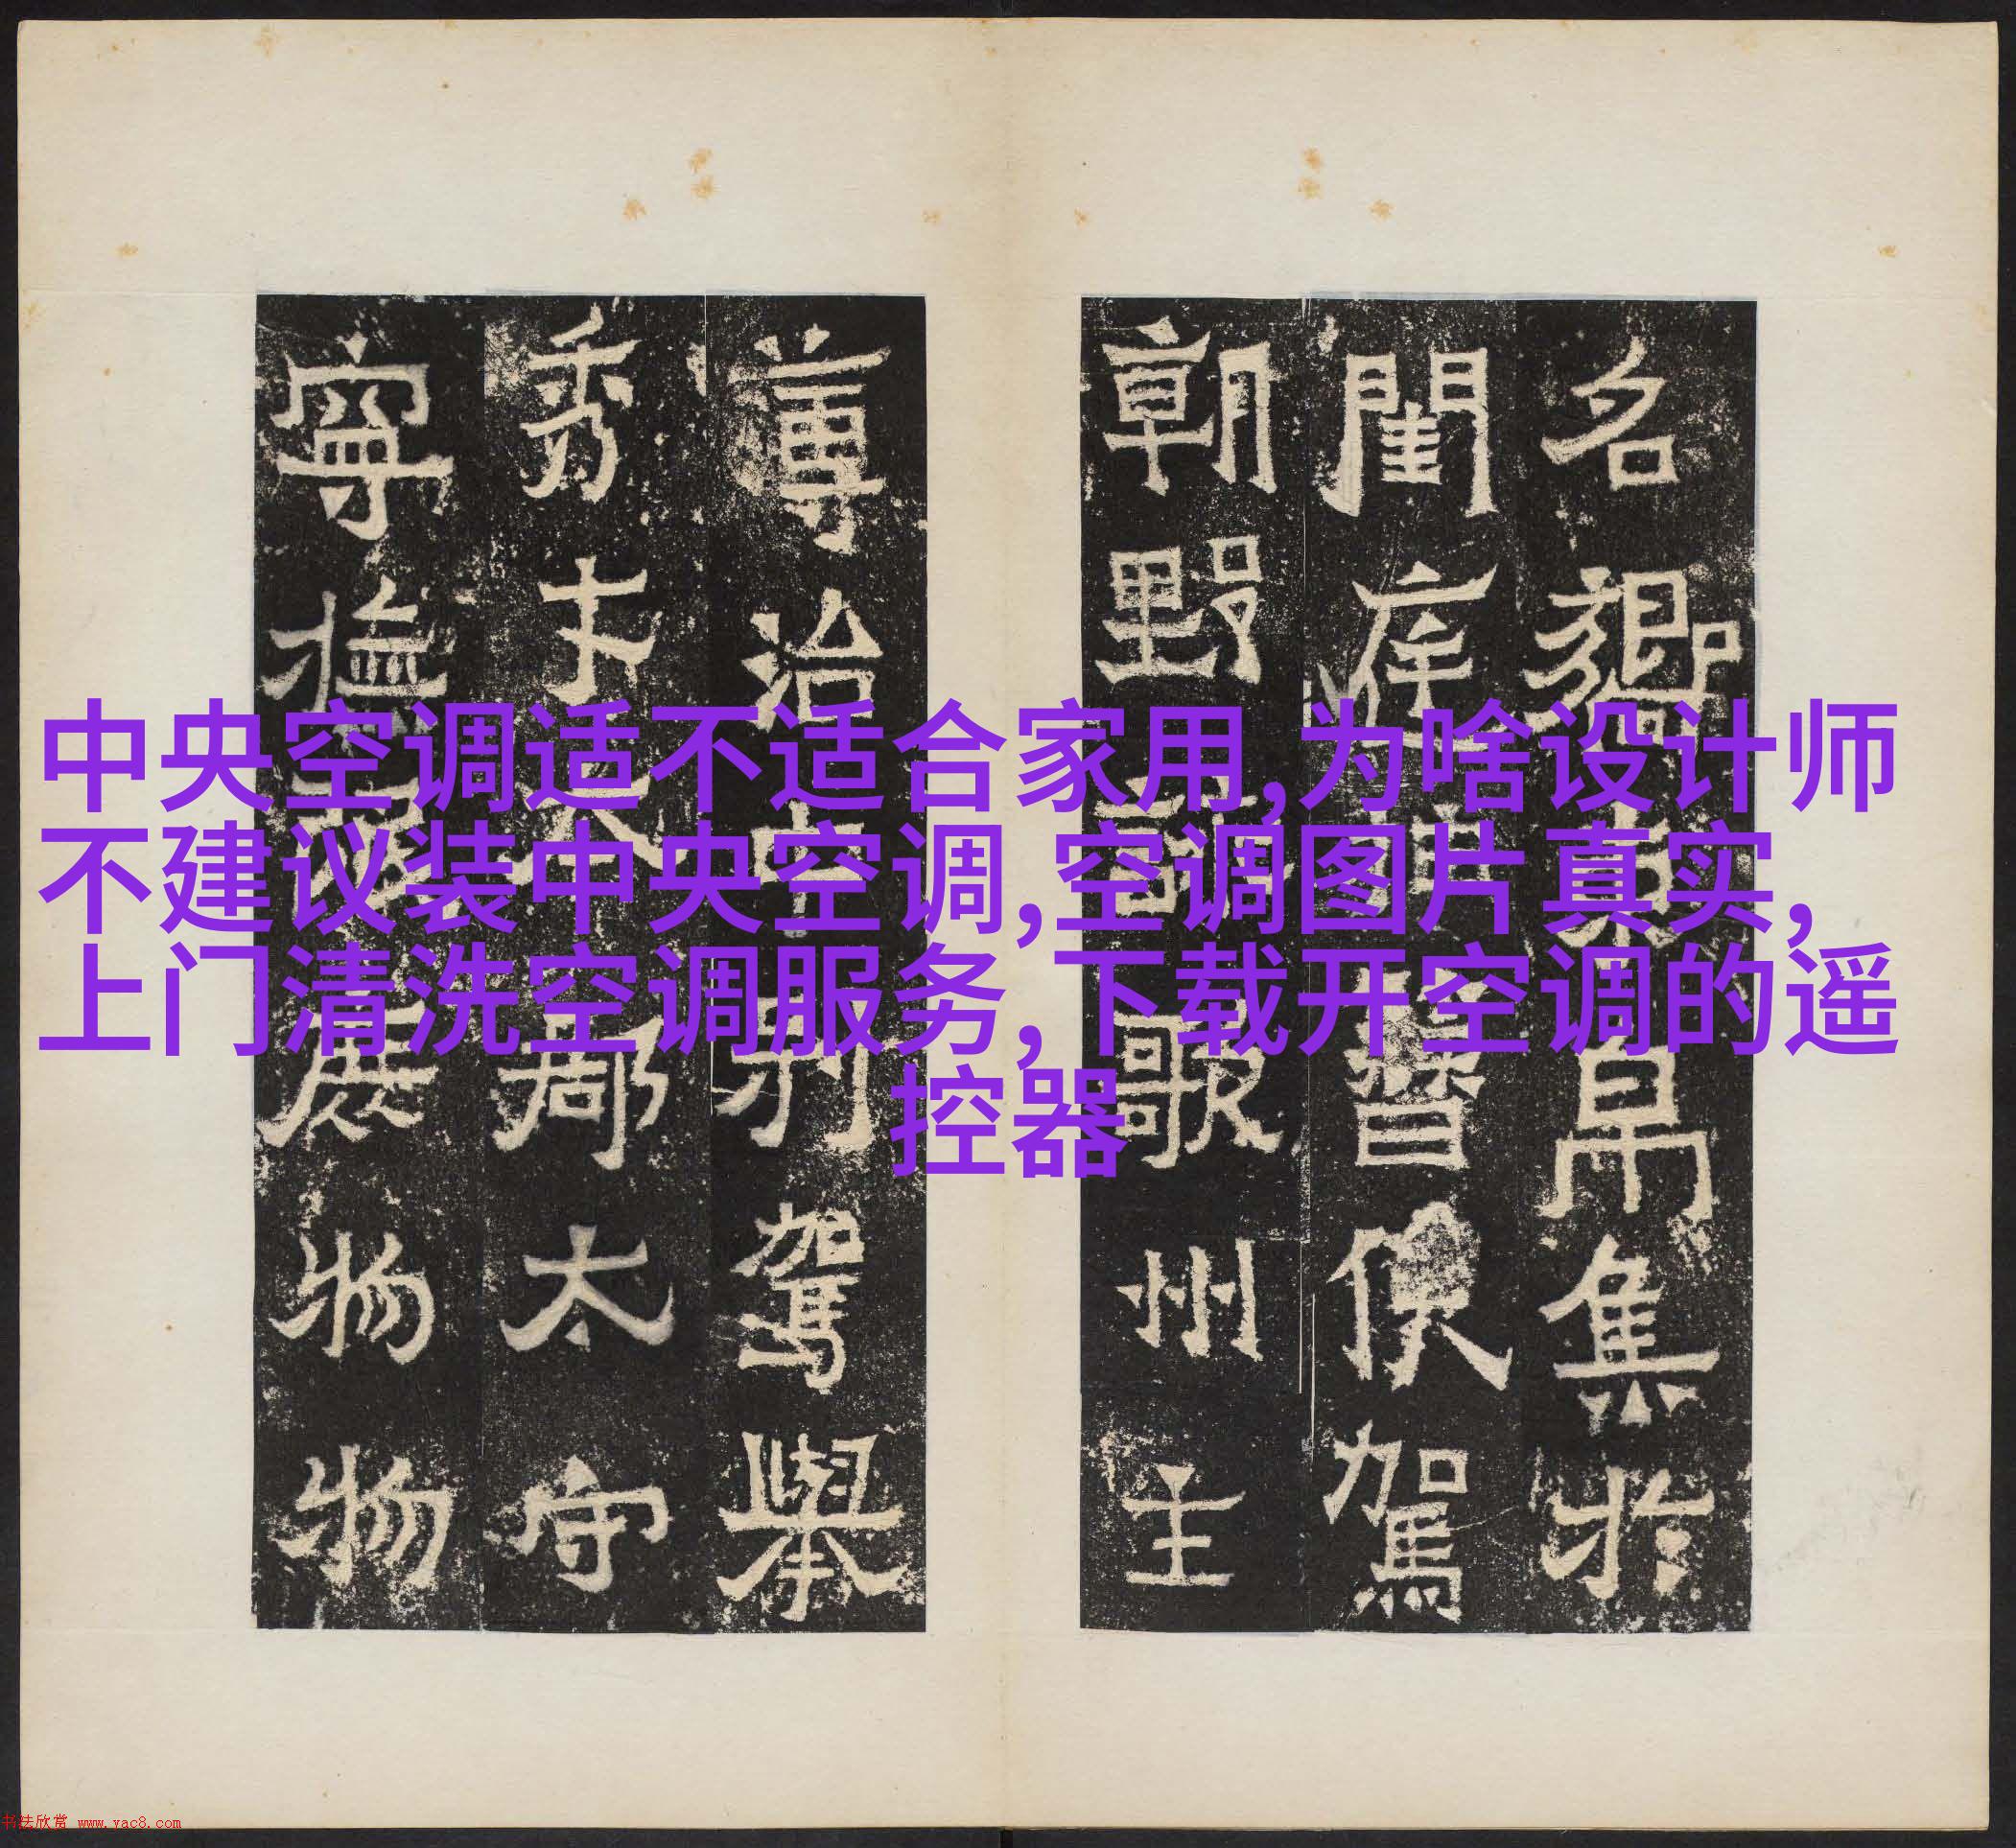 中央空调适不适合家用,为啥设计师
不建议装中央空调,空调图片真实,
上门清洗空调服务,下载开空调的遥
控器
名鄉
帛集於
閨庭
督使駕
朝野
歌州主
尊治
別駕舉
秀才
郡太守
寧
物物
书法欣赏 www.yac8.com